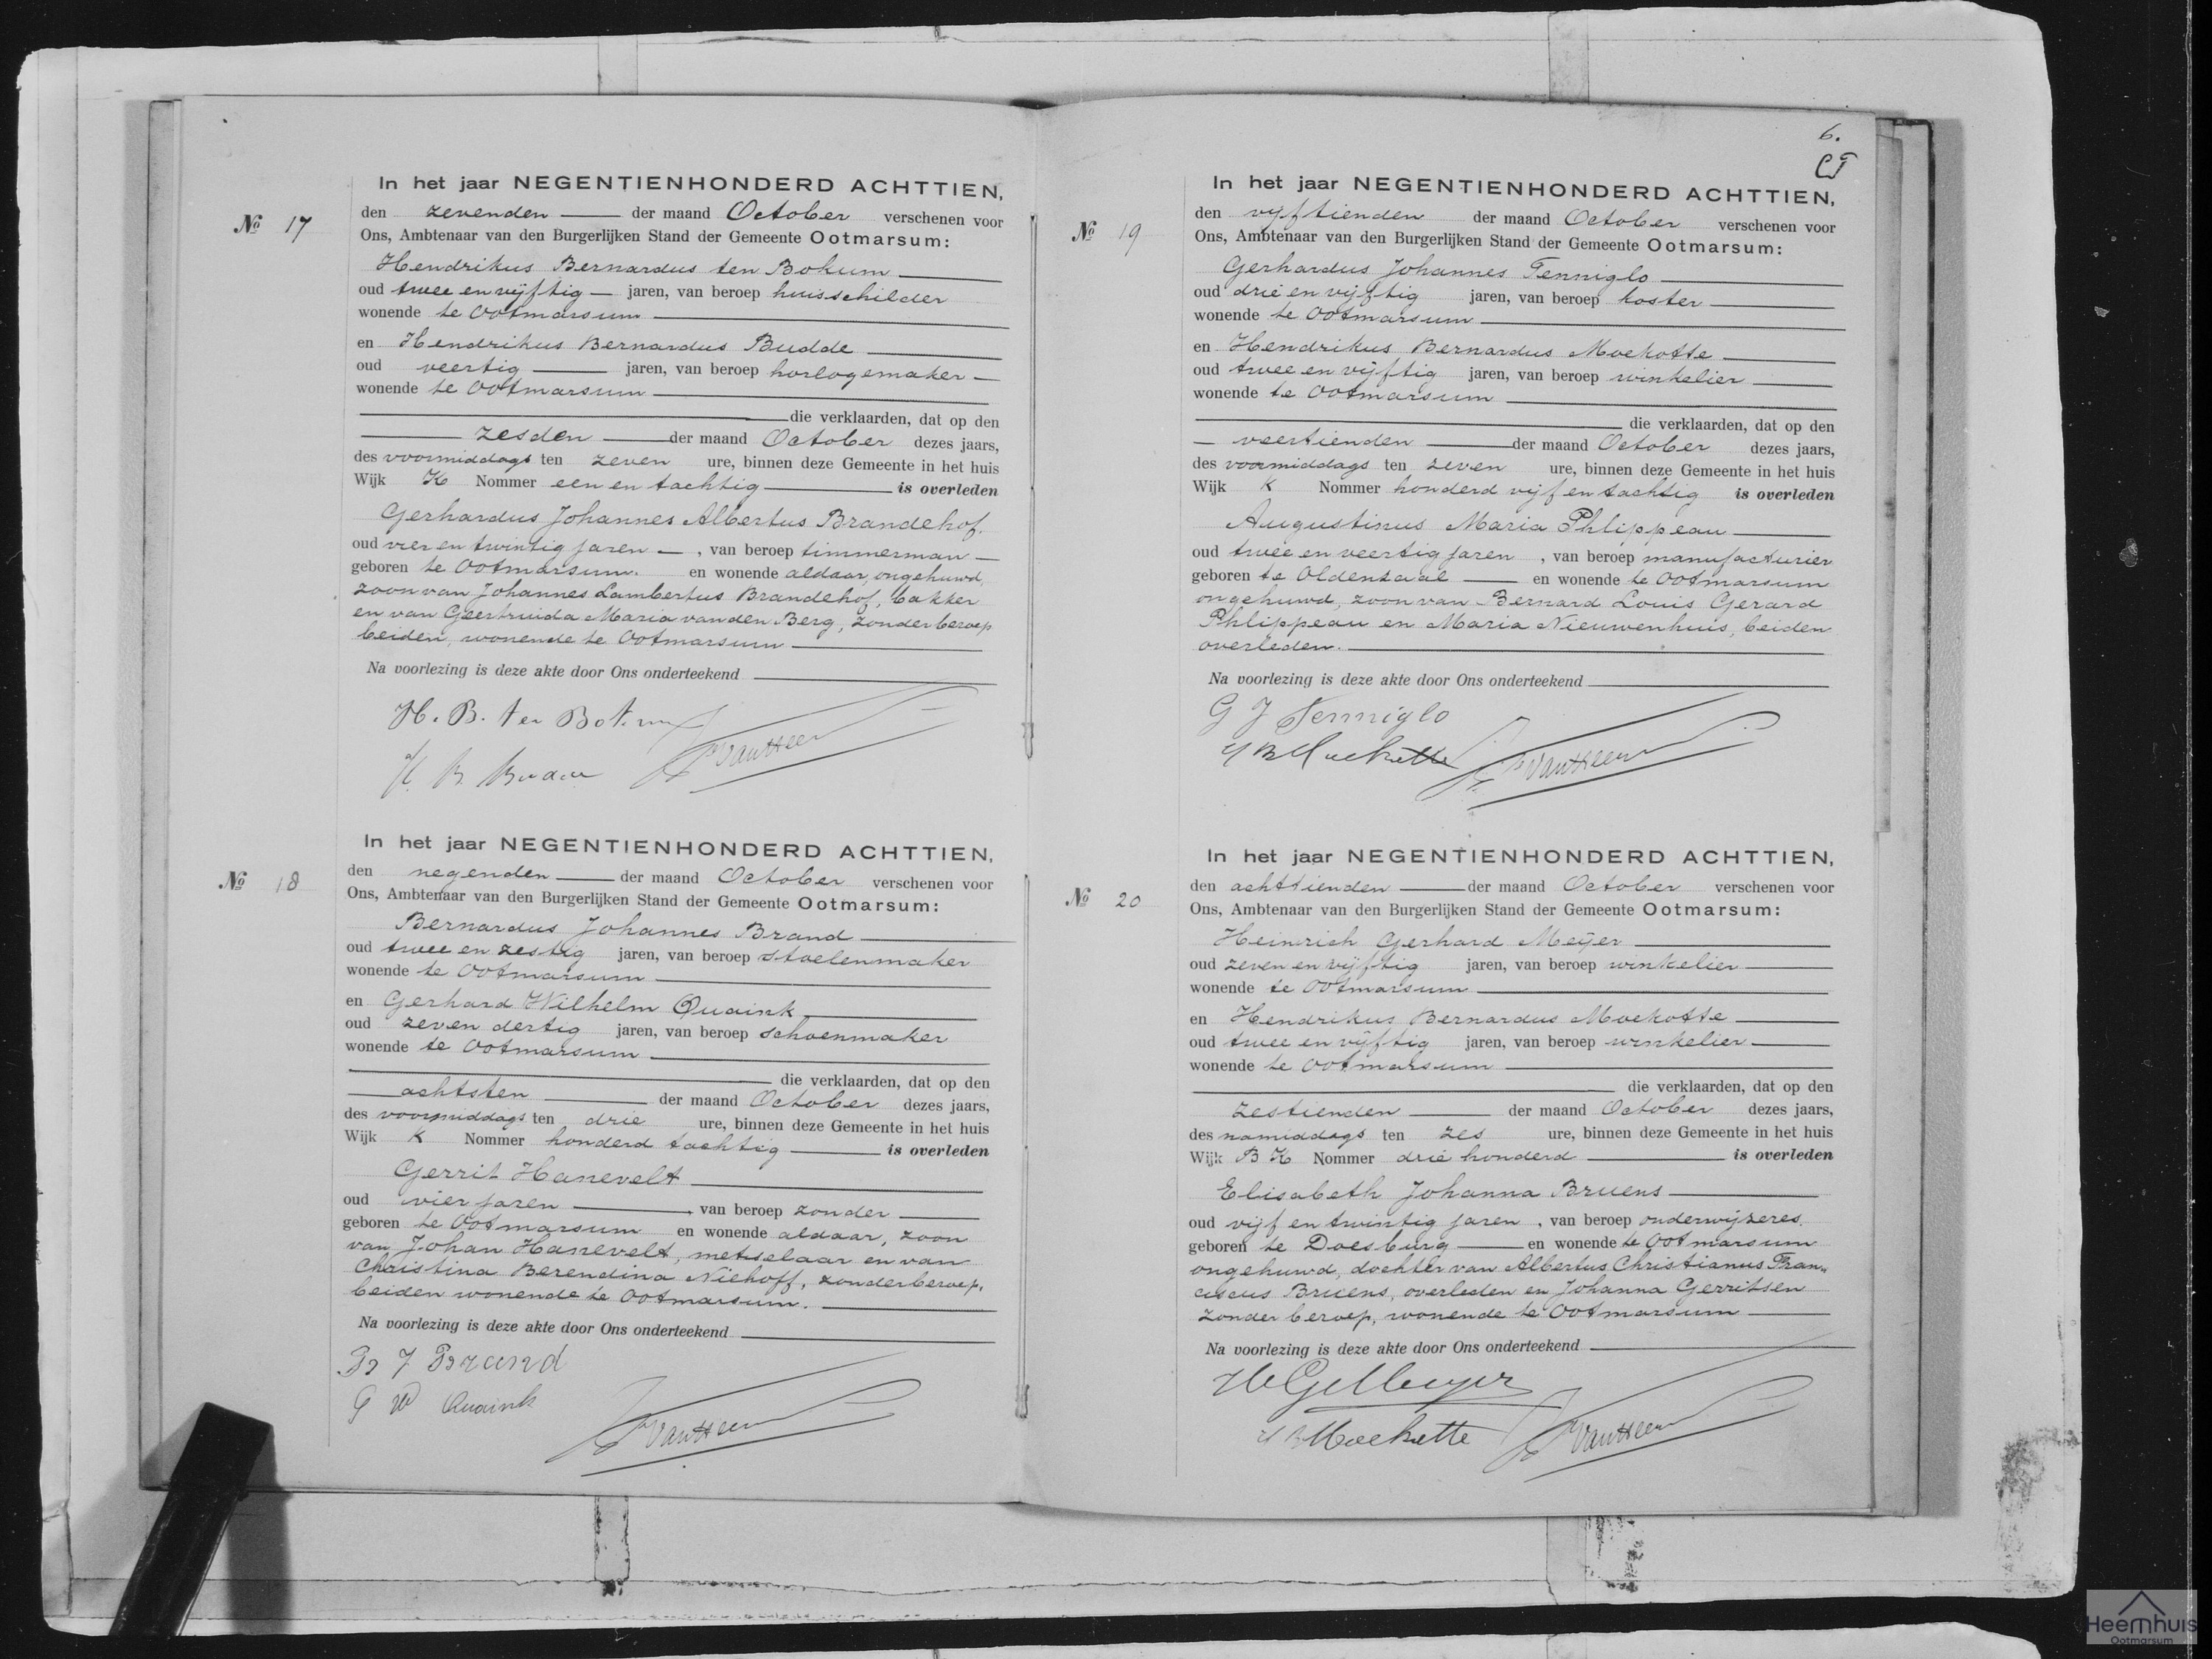 In het jaar NEGENTIENHONDERD ACHTTIEN,
№ 17
den zevenden der maand October verschenen voor
Ons, Ambtenaar van den Burgerlijken Stand der Gemeente Ootmarsum:
Hendrikus Bernardus ten Bokum
oud twee en vijftig jaren, van beroep huisschilder
wonende te Ootmarsum
en Hendrikus Bernardus Budde
oud veertig jaren, van beroep horlogemaker
wonende te Ootmarsum
die verklaarden, dat op den
zesden der maand October dezes jaars,
des voormiddags ten zeven ure, binnen deze Gemeente in het huis
Wijk K Nommer een en tachtig is overleden
Gerhardus Johannes Albertus Brandehof.
oud vier en twintig jaren, van beroep timmerman
geboren te Ootmarsum. en wonende aldaar, ongehuwd,
zoon van Johannes Lambertus Brandehof, bakker
en van Geertruida Maria van den Berg, zonder beroep
beiden, wonende te Ootmarsum
Na voorlezing is deze akte door Ons onderteekend
H. B. ten Bokum
H. B. Budde
VanHeek
In het jaar NEGENTIENHONDERD ACHTTIEN,
№ 18
den negenden der maand October verschenen voor
Ons, Ambtenaar van den Burgerlijken Stand der Gemeente Ootmarsum:
Bernardus Johannes Brand
oud twee en zestig jaren, van beroep stoelenmaker
wonende te Ootmarsum
en Gerhard Wilhelm Quaink
oud zeven dertig jaren, van beroep schoenmaker
wonende te Ootmarsum
die verklaarden, dat op den
achtsten der maand October dezes jaars,
des voormiddags ten drie ure, binnen deze Gemeente in het huis
Wijk K Nommer honderd tachtig is overleden
Gerrit Hanevelt
oud vier jaren, van beroep zonder
geboren te Ootmarsum en wonende aldaar, zoon
van Johan Hanevelt, metselaar en van
Christina Berendina Niehoff, zonder beroep,
beiden wonende te Ootmarsum.
Na voorlezing is deze akte door Ons onderteekend
B J Brand
G W Quaink
6.
In het jaar NEGENTIENHONDERD ACHTTIEN,
№ 19
den vijftienden der maand October verschenen voor
Ons, Ambtenaar van den Burgerlijken Stand der Gemeente Ootmarsum:
Gerhardus Johannes Tenniglo
oud drie en vijftig jaren, van beroep koster
wonende te Ootmarsum
en Hendrikus Bernardus Moekotte
oud twee en vijftig jaren, van beroep winkelier
wonende te Ootmarsum
die verklaarden, dat op den
veertienden der maand October dezes jaars,
des voormiddags ten zeven ure, binnen deze Gemeente in het huis
Wijk K Nommer honderd vijf en tachtig is overleden
Augustinus Maria Phlippeau
oud twee en veertig jaren, van beroep manufacturier
geboren te Oldenzaal en wonende te Ootmarsum
ongehuwd, zoon van Bernard Louis Gerard
Phlippeau en Maria Nieuwenhuis, beiden
overleden.
Na voorlezing is deze akte door Ons onderteekend
G J Tenniglo
H B Moekotte
In het jaar NEGENTIENHONDERD ACHTTIEN,
№ 20
den achttienden der maand October verschenen voor
Ons, Ambtenaar van den Burgerlijken Stand der Gemeente Ootmarsum:
Heinrich Gerhard Meijer
oud zeven en vijftig jaren, van beroep winkelier
wonende te Ootmarsum
en Hendrikus Bernardus Moekotte
oud twee en vijftig jaren, van beroep winkelier
wonende te Ootmarsum
die verklaarden, dat op den
zestienden der maand October dezes jaars,
des namiddags ten zes ure, binnen deze Gemeente in het huis
Wijk B K Nommer drie honderd is overleden
Elisabeth Johanna Bruens
oud vijf en twintig jaren, van beroep onderwijzeres,
geboren te Doesburg en wonende te Ootmarsum
ongehuwd, dochter van Albertus Christianus Fran„
ciscus Bruens, overleden en Johanna Gerritsen
zonder beroep, wonende te Ootmarsum
Na voorlezing is deze akte door Ons onderteekend
H G Meijer
H B Moekotte
Heemhuis
Ootmarsum